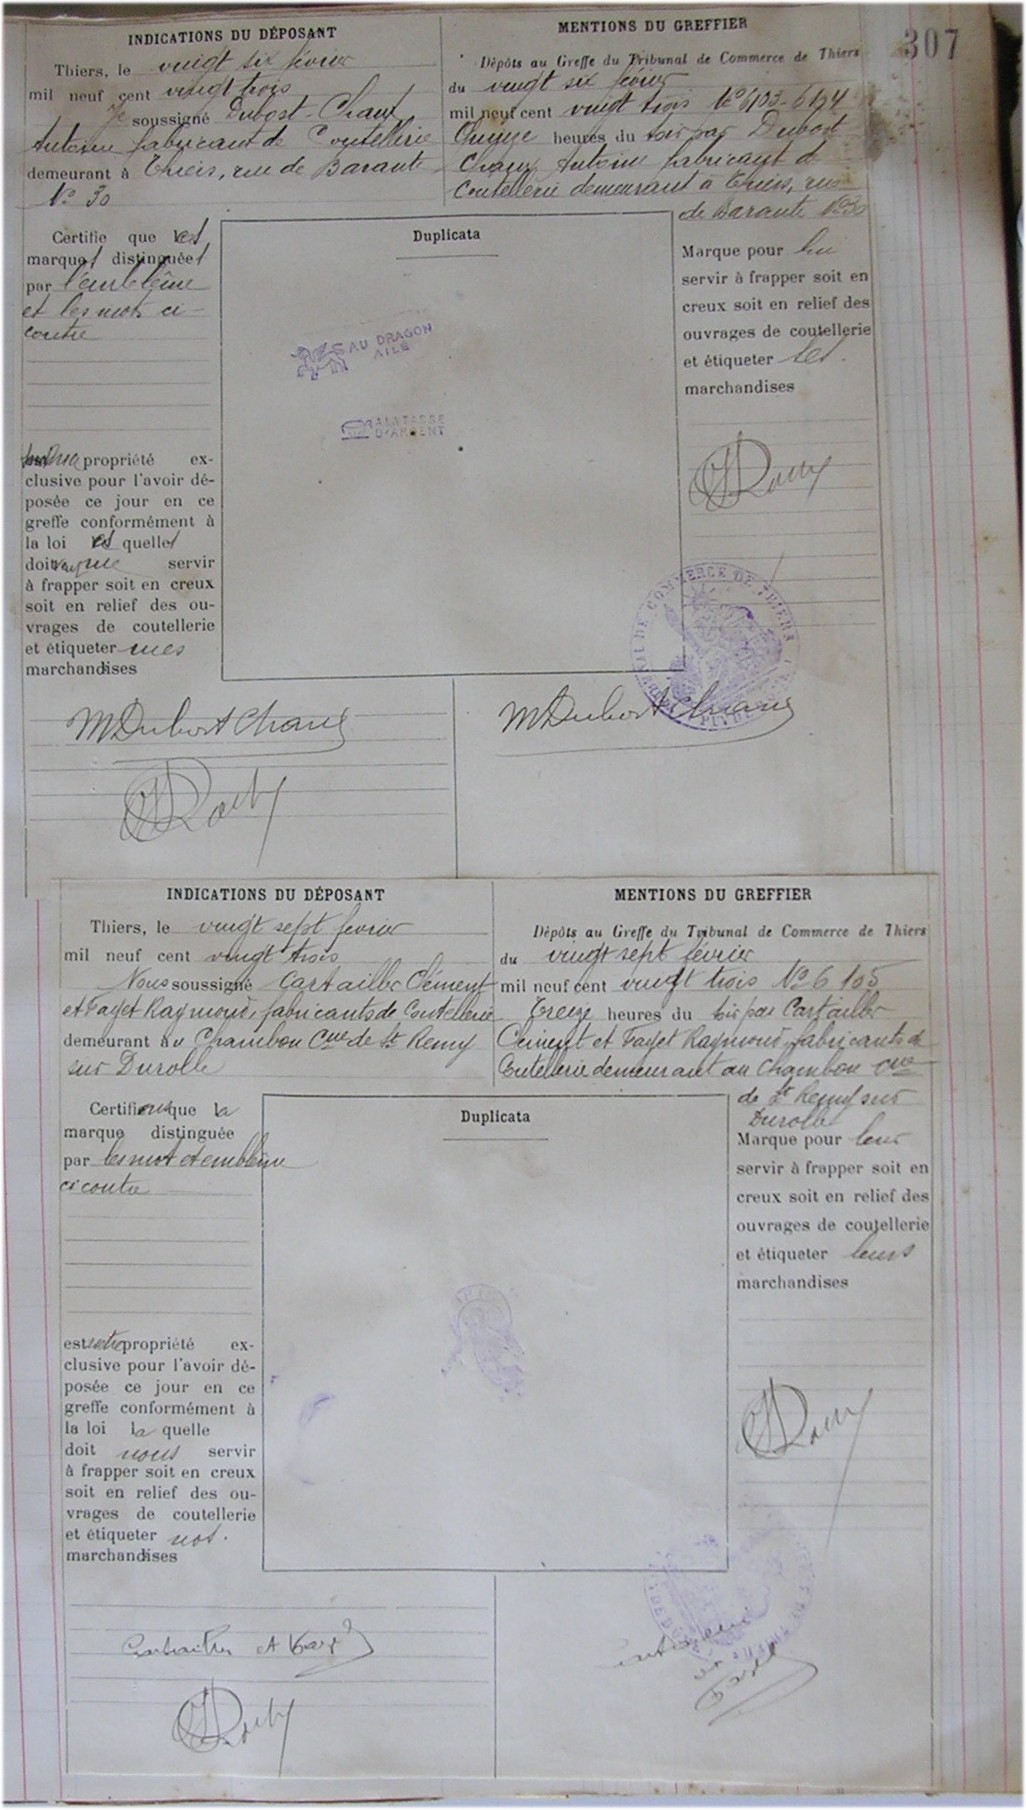 307
INDICATIONS DU DÉPOSANT
Thiers, le vingt six février
mil neuf cent vingt trois
Je soussigné Dubost-Chaux
Antoine fabricant de Coutellerie
demeurant à Thiers, rue de Barante
No 30
MENTIONS DU GREFFIER
Dépôts au Greffe du Tribunal de Commerce de Thiers
du vingt six février
mil neuf cent vingt trois
heures du soir par Dubost
Chaux Antoine fabricant de
Coutellerie demeurant à Thiers, rue
de Barante No 30
Certifie que les
marques distinguées
par l'emblême
et les mots ci-
contre
propriété ex-
clusive pour l'avoir dé-
posée ce jour en ce
greffe conformément à
la loi les quelles
servir
à frapper soit en creux
soit en relief des ou-
vrages de coutellerie
et étiqueter mes
marchandises
Duplicata
AU DRAGON
AILÉ
A LA TASSE
D'ARGENT
Marque pour lui
servir à frapper soit en
creux soit en relief des
ouvrages de coutellerie
et étiqueter ses
marchandises
DE COMMERCE DE THIERS
M Dubost Chaux
M Dubost Chaux
INDICATIONS DU DÉPOSANT
Thiers, le vingt sept février
mil neuf cent vingt trois
Nous soussigné Cartailler Clément
et Fayet Raymond, fabricants de Coutellerie
demeurant au Chambon Cne de St Remy
sur Durolle
MENTIONS DU GREFFIER
Dépôts au Greffe du Tribunal de Commerce de Thiers
du vingt sept février
mil neuf cent vingt trois No 6105
Treize heures du soir par Cartailler
Clément et Fayet Raymond, fabricants de
Coutellerie demeurant au Chambon Cne
de St Remy sur
Durolle
Certifions que la
marque distinguée
par les mot et emblême
ci contre
est notre propriété ex-
clusive pour l'avoir dé-
posée ce jour en ce
greffe conformément à
la loi la quelle
doit nous servir
à frapper soit en creux
soit en relief des ou-
vrages de coutellerie
et étiqueter nos
marchandises
Duplicata
Marque pour leur
servir à frapper soit en
creux soit en relief des
ouvrages de coutellerie
et étiqueter leurs
marchandises
Cartailler et Fayet